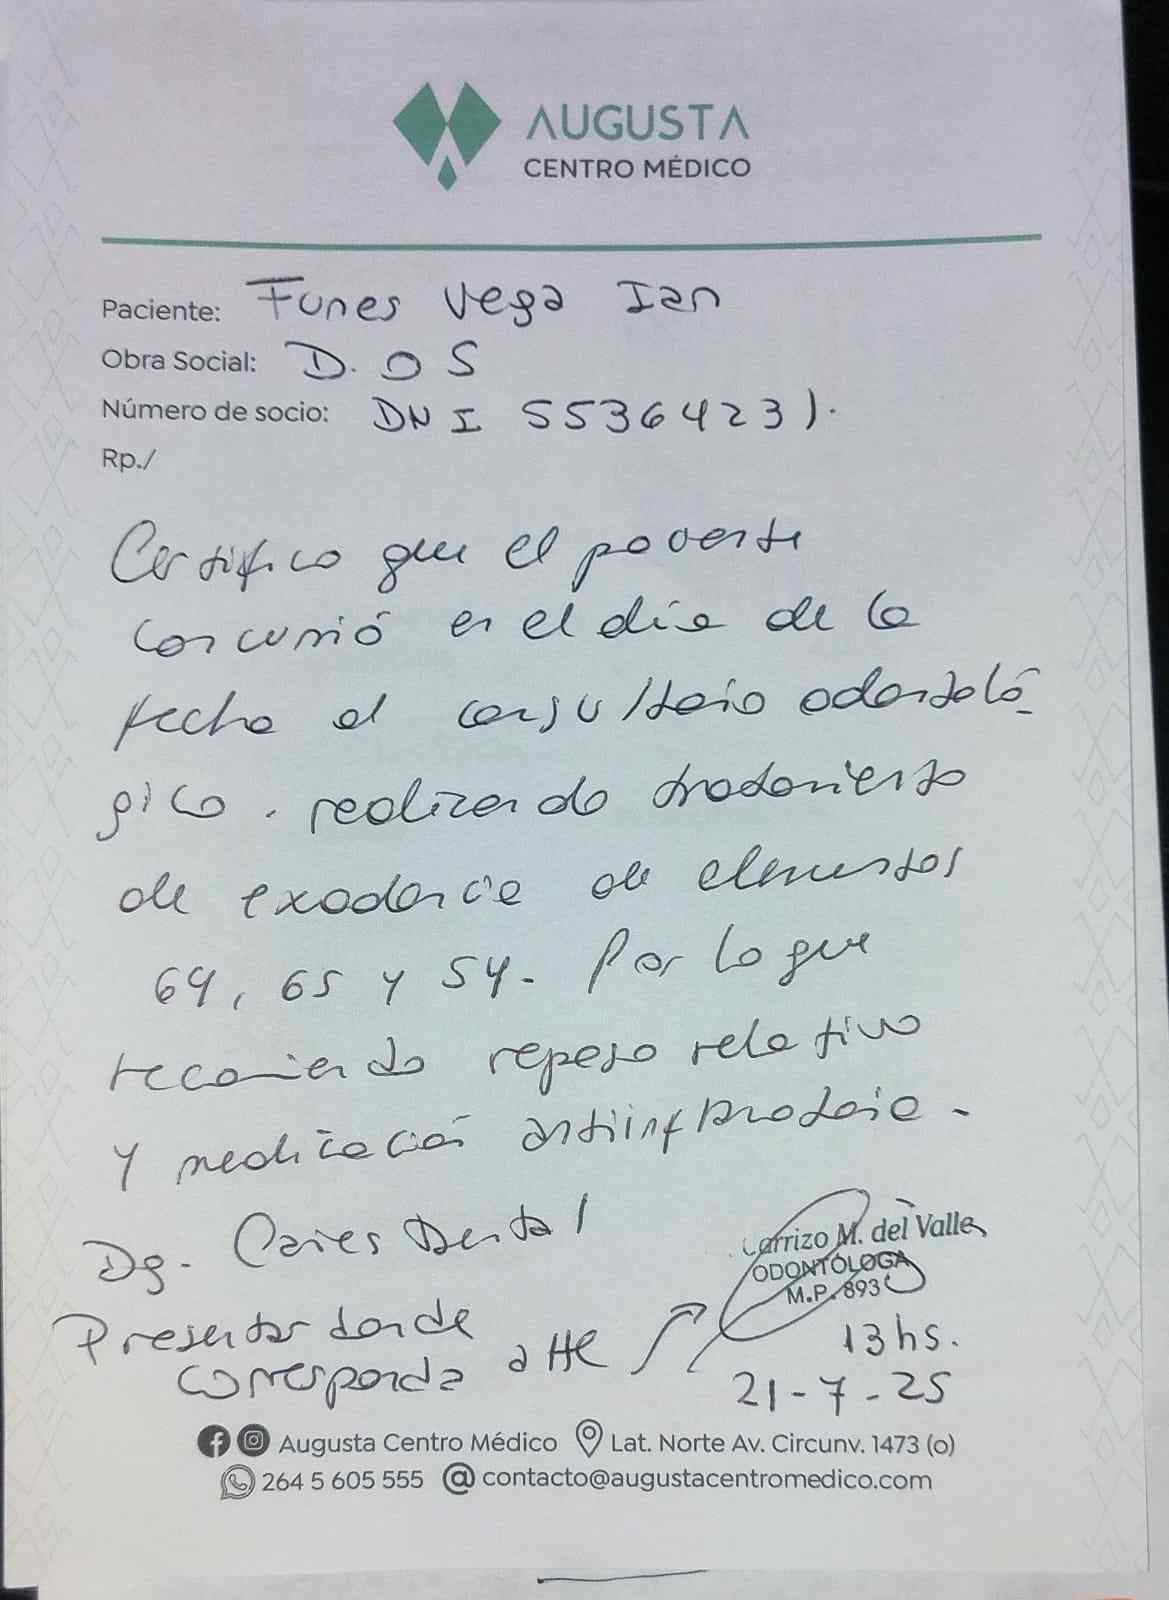 AUGUSTA
CENTRO MÉDICO
Paciente: Funes Vega Ian
Obra Social: D.O S
Número de socio: DNI 55364231.
Rp./
Certifico que el paciente
concurrió en el día de la
fecha al consultorio odontoló-
gico. realizando tratamiento
de exodoncia de elementos
64, 65 y 54. Por lo que
recomiendo reposo relativo
y medicación antiinflamatoria -
Dg. Caries Dental
Carrizo M. del Valle
ODONTÓLOGA
M.P. 893
Presentar donde
corresponda atte
13 hs.
21-7-25
Augusta Centro Médico Lat. Norte Av. Circunv. 1473 (o)
264 5 605 555 @ contacto@augustacentromedico.com